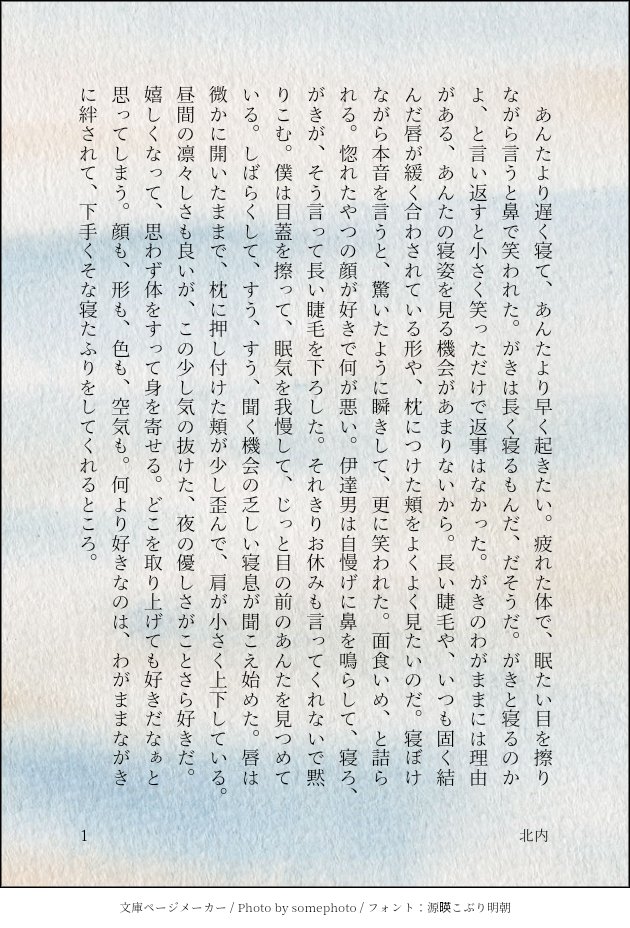 あんたより遅く寝て、あんたより早く起きたい。疲れた体で、眠たい目を擦り
ながら言うと鼻で笑われた。がきは長く寝るもんだ、だそうだ。がきと寝るのか
よ、と言い返すと小さく笑っただけで返事はなかった。がきのわがままには理由
がある、あんたの寝姿を見る機会があまりないから。長い睫毛や、いつも固く結
んだ唇が緩く合わされている形や、枕につけた頬をよくよく見たいのだ。寝ぼけ
ながら本音を言うと、驚いたように瞬きして、更に笑われた。面食いめ、と詰ら
れる。惚れたやつの顔が好きで何が悪い。伊達男は自慢げに鼻を鳴らして、寝ろ、
がきが、そう言って長い睫毛を下ろした。それきりお休みも言ってくれないで黙
りこむ。僕は目蓋を擦って、眠気を我慢して、じっと目の前のあんたを見つめて
いる。しばらくして、すう、すう、聞く機会の乏しい寝息が聞こえ始めた。唇は
微かに開いたままで、枕に押し付けた頬が少し歪んで、肩が小さく上下している。
昼間の凛々しさも良いが、この少し気の抜けた、夜の優しさがことさら好きだ。
嬉しくなって、思わず体をすって身を寄せる。どこを取り上げても好きだなぁと
思ってしまう。顔も、形も、色も、空気も。何より好きなのは、わがままながき
に絆されて、下手くそな寝たふりをしてくれるところ。
北内
1
文庫ページメーカー / Photo by somephoto / フォント：源暎こぶり明朝